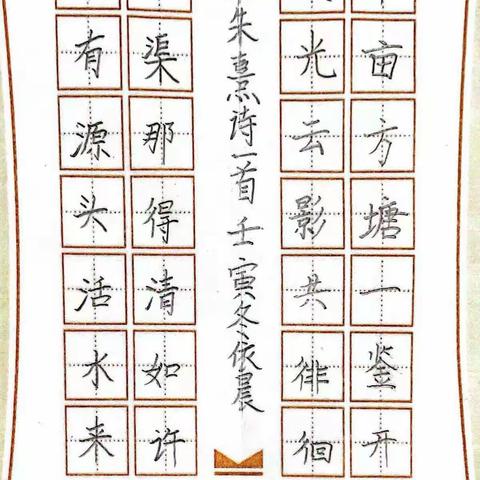 亩方塘一鉴开
光云影共徘徊
朱熹诗一首 壬寅冬依晨
渠那得清如许
有源头活水来